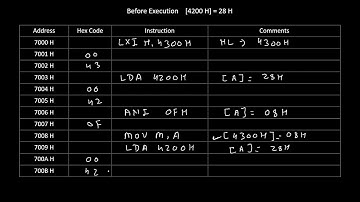 Before Execution [4200 H] = 28 H
Address Hex Code Instruction Comments
7000 H LXI H, 4300H HL → 4300H
7001 H 00
7002 H 43
7003 H LDA 4200H [A] = 28H
7004 H 00
7005 H 42
7006 H ANI 0FH [A] = 08H
7007 H 0F
7008 H MOV M, A [4300H] = 08H
7009 H LDA 4200H [A] = 28H
700A H 00
700B H 42